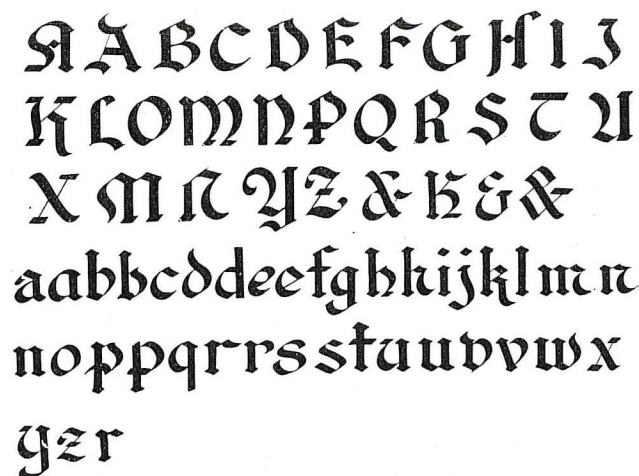 A A B C D E F G H I J
K L O M N P Q R S T U
X M N Y Z & K & &
a a b b c d d e e f g h h i j k l m n
n o p p q r r s s t u u v v w x
y z r